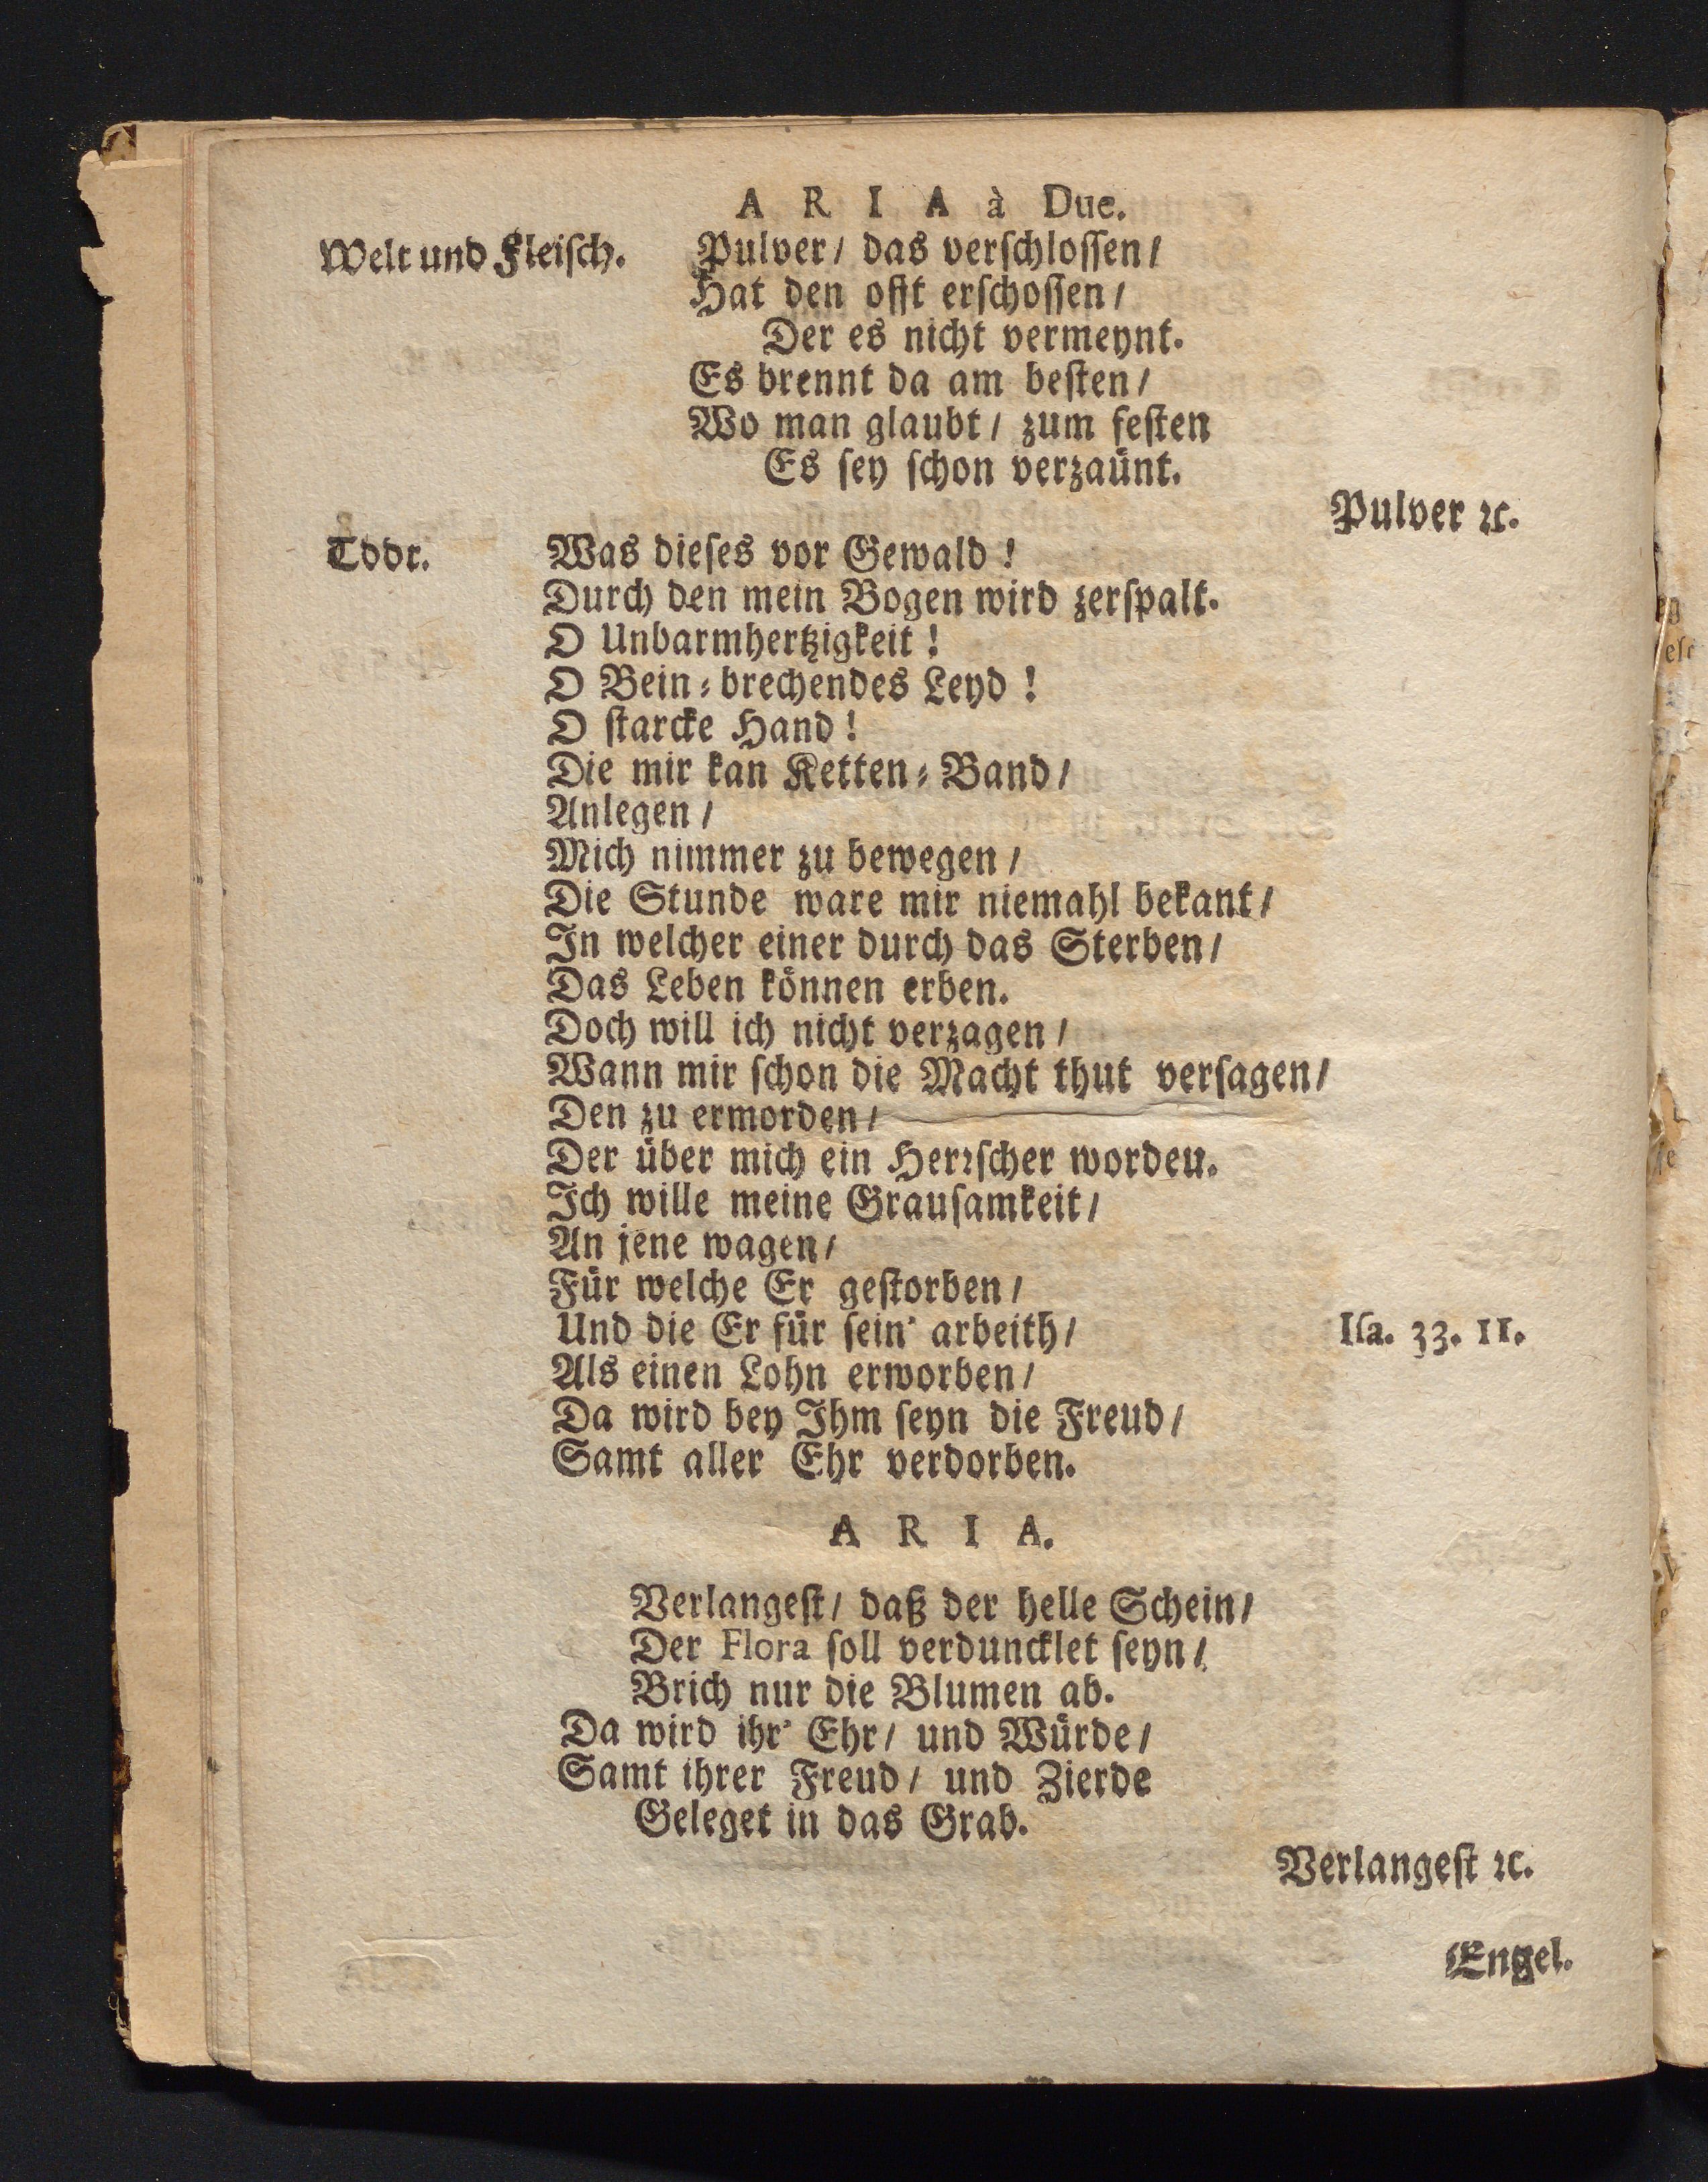 ARIA à Due.
Welt und Fleiſch. Pulver / das verſchloſſen /
Hat den offt erſchoſſen /
Der es nicht vermeynt.
Es brennt da am beſten /
Wo man glaubt / zum feſten
Es ſey ſchon verzaünt.
Pulver ꝛc.
Todt. Was dieſes vor Gewald !
Durch den mein Bogen wird zerſpalt.
O Unbarmhertzigkeit !
O Bein⸗brechendes Leyd !
O ſtarcke Hand !
Die mir kan Ketten⸗Band /
Anlegen /
Mich nimmer zu bewegen /
Die Stunde ware mir niemahl bekant /
In welcher einer durch das Sterben /
Das Leben können erben.
Doch will ich nicht verzagen /
Wann mir ſchon die Macht thut verſagen /
Den zu ermorden /
Der über mich ein Herꝛſcher worden.
Ich wille meine Grauſamkeit /
An jene wagen /
Für welche Er geſtorben /
Und die Er für ſein' arbeith / Iſa. 33. 11.
Als einen Lohn erworben /
Da wird bey Ihm ſeyn die Freud /
Samt aller Ehr verdorben.
ARIA.
Verlangeſt / daß der helle Schein /
Der Flora ſoll verduncklet ſeyn /
Brich nur die Blumen ab.
Da wird ihr' Ehr / und Würde /
Samt ihrer Freud / und Zierde
Geleget in das Grab.
Verlangeſt ꝛc.
Engel.